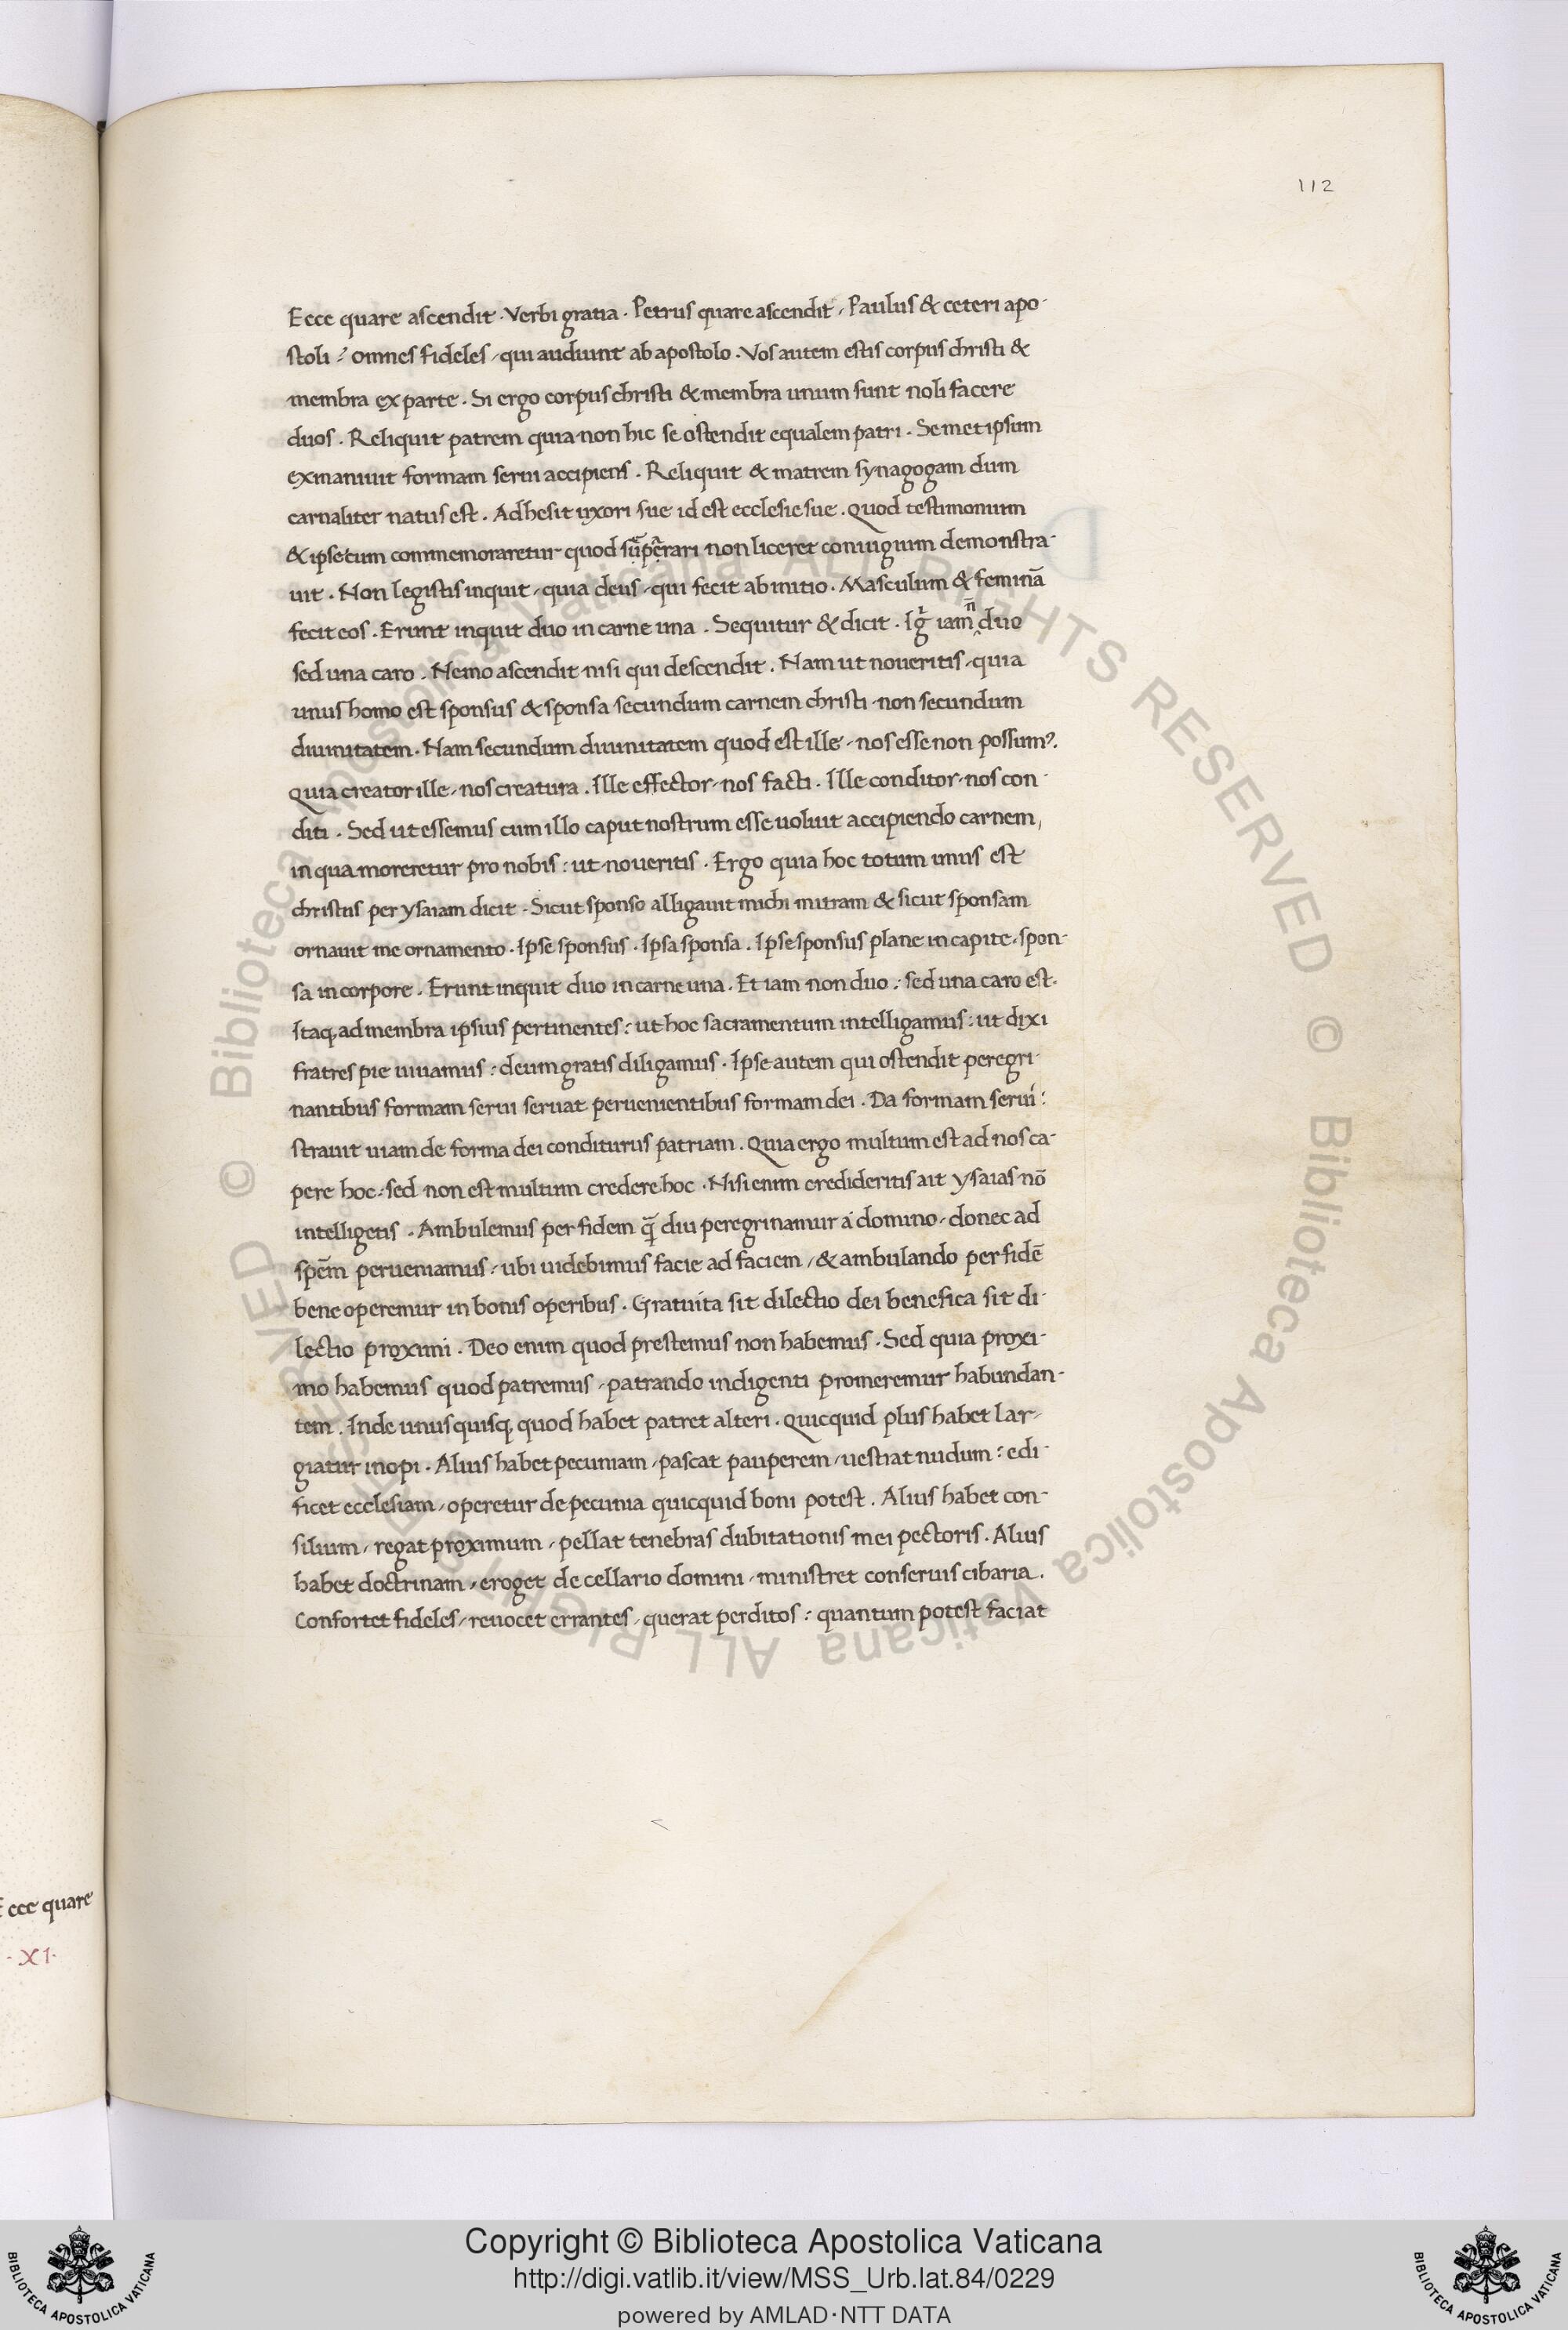 112
Ecce quare ascendit · Verbi gratia · Petrus quare ascendit / Paulus & ceteri apo-
stoli ? omnes fideles / qui audiunt ab apostolo · Vos autem estis corpus christi &
membra ex parte · Si ergo corpus christi & membra unum sunt noli facere
duos · Reliquit patrem quia non hic se ostendit equalem patri · Semetipsum
exinaniuit formam serui accipiens · Reliquit & matrem synagogam dum
carnaliter natus est · Adhesit uxori sue id est ecclesie sue · Quod testimonium
& ipse cum commemoraretur quod rari non liceret coniugium demonstra-
uit · Non legistis inquit / quia deus / qui fecit ab initio · Masculum & feminā
fecit eos · Erunt inquit duo in carne una · Sequitur & dicit · Igr̄ iam n̄ duo
sed una caro · Nemo ascendit nisi qui descendit · Nam ut noueritis / quia
unus homo est sponsus & sponsa secundum carnem christi / non secundum
diuinitatem · Nam secundum diuinitatem quod est ille / nos esse non possumꝰ.
Quia creator ille / nos creatura · Ille effector / nos facti · Ille conditor / nos con-
diti · Sed ut essemus cum illo caput nostrum esse uoluit accipiendo carnem /
in qua moreretur pro nobis : ut noueritis · Ergo quia hoc totum unus est
christus per ysaiam dicit · Sicut sponso alligauit michi mitram & sicut sponsam
ornauit me ornamento · Ipse sponsus · Ipsa sponsa · Ipse sponsus plane in capite / spon-
sa in corpore · Erunt inquit duo in carne una · Et iam non duo : sed una caro est.
Itaq; ad membra ipsius pertinentes : ut hoc sacramentum intelligamus : ut dixi
fratres pie uiuamus : deum gratis diligamus · Ipse autem qui ostendit peregri-
nantibus formam serui seruat peruenientibus formam dei · Da formam serui :
strauit uiam de forma dei conditurus patriam · Quia ergo multum est ad nos ca-
pere hoc : sed non est multum credere hoc · Nisi enim credideritis ait ysaias nō
intelligetis · Ambulemus per fidem q̄ diu peregrinamur a domino / donec ad
spēm perueniamus / ubi uidebimus facie ad faciem / & ambulando per fidē
bene operemur in bonis operibus · Gratuita sit dilectio dei benefica sit di-
lectio proximi · Deo enim quod prestemus non habemus · Sed quia proxi-
mo habemus quod patremus / patrando indigenti promeremur habundan-
tem · Inde unusquisq; quod habet patret alteri · Quicquid plus habet lar-
giatur inopi · Alius habet pecuniam / pascat pauperem / uestiat nudum : edi-
ficet ecclesiam / operetur de pecunia quicquid boni potest · Alius habet con-
silium / regat proximum / pellat tenebras dubitationis mei pectoris · Alius
habet doctrinam / eroget de cellario domini / ministret conseruis cibaria ·
Confortet fideles / reuocet errantes / querat perditos : quantum potest faciat
Ecce quare
· XI ·
© Biblioteca Apostolica Vaticana ALL RIGHTS RESERVED © Biblioteca Apostolica Vaticana ALL RIGHTS RESERVED
Copyright © Biblioteca Apostolica Vaticana
http://digi.vatlib.it/view/MSS_Urb.lat.84/0229
powered by AMLAD·NTT DATA
BIBLIOTECA APOSTOLICA VATICANA
BIBLIOTECA APOSTOLICA VATICANA